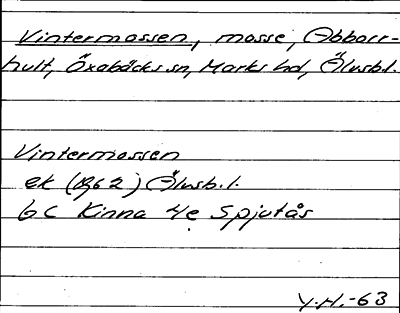 Vintermossen, mosse, Abborr-
hult, Öxabäcks sn, Marks hd, Älvsb.l.
Vintermossen
ek (1962) Älvsb.l.
6C Kinna 4e Spjutås
Y.H.-63